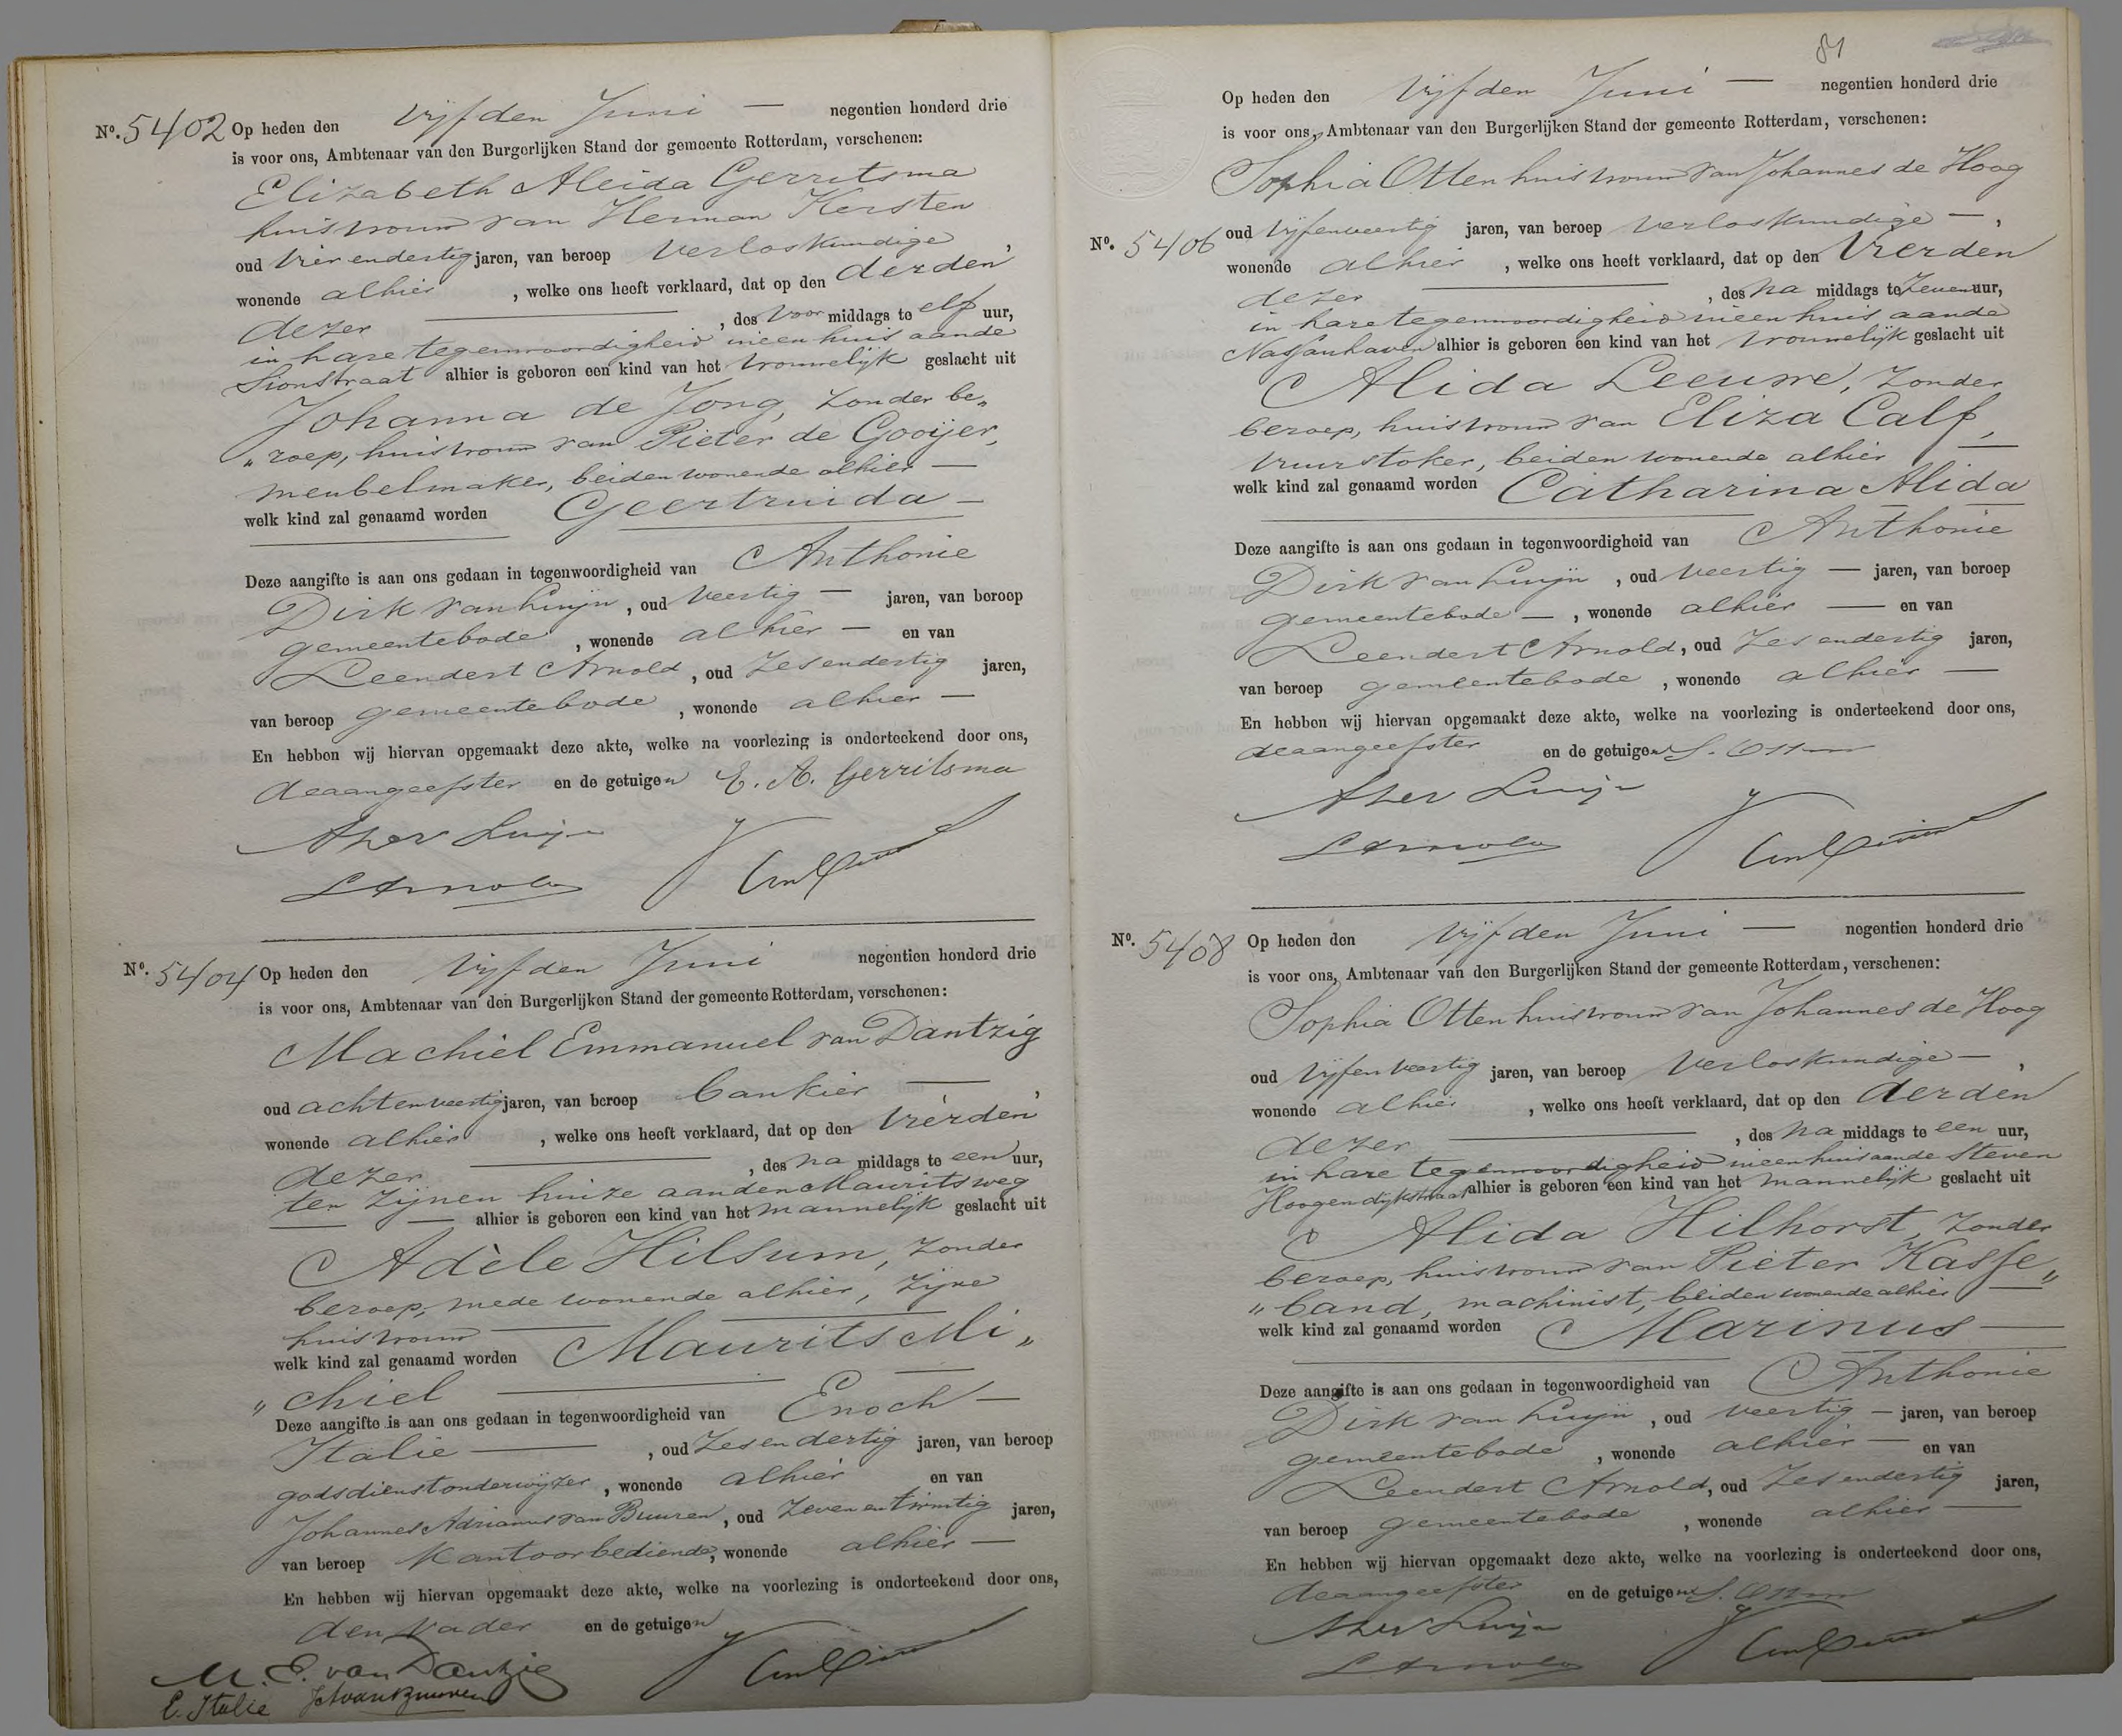 No. 5402 Op heden den Vijfden Juni — negentien honderd drie
is voor ons, Ambtenaar van den Burgerlijken Stand der gemeente Rotterdam, verschenen:
Elizabeth Aleida Gerritsma
huisvrouw van Herman Kersten
oud Vier endertig jaren, van beroep Verloskundige,
wonende alhier, welke ons heeft verklaard, dat op den derden
dezer —, des Voor middags te elf uur,
in hare tegenwoordigheid in een huis aan de
Sionstraat alhier is geboren een kind van het Vrouwelijk geslacht uit
Johanna de Jong, Zonder be„
„roep, huisvrouw van Pieter de Gooijer,
meubelmaker, beiden wonende alhier —
welk kind zal genaamd worden Geertruida —
Deze aangifte is aan ons gedaan in tegenwoordigheid van Anthonie
Dirk van Luijn, oud Veertig — jaren, van beroep
gemeentebode, wonende alhier — en van
Leendert Arnold, oud Zesendertig jaren,
van beroep gemeentebode, wonende alhier —
En hebben wij hiervan opgemaakt deze akte, welke na voorlezing is onderteekend door ons,
de aangeefster en de getuigen E. A. Gerritsma
LArnold
No. 5404 Op heden den Vijfden Juni negentien honderd drie
is voor ons, Ambtenaar van den Burgerlijken Stand der gemeente Rotterdam, verschenen:
Machiel Emmanuel van Dantzig
oud achtenveertig jaren, van beroep bankier —,
wonende alhier, welke ons heeft verklaard, dat op den Vierden
dezer —, des na middags te een uur,
ten Zijnen huize aan den Mauritsweg
— alhier is geboren een kind van het mannelijk geslacht uit
Adèle Hilsum, Zonder
beroep, mede wonende alhier, Zijne
huisvrouw —
welk kind zal genaamd worden Maurits Mi„
„chiel —
Deze aangifte is aan ons gedaan in tegenwoordigheid van Enoch —
Italie —, oud Zesendertig jaren, van beroep
godsdienstonderwijzer, wonende alhier en van
Johannes Adrianus van Buuren, oud Zevenentwintig jaren,
van beroep Kantoorbediende, wonende alhier —
En hebben wij hiervan opgemaakt deze akte, welke na voorlezing is onderteekend door ons,
den Vader en de getuigen
M. E. van Dantzig
E. Italie JAvanBuuren
81
Op heden den Vijfden Juni — negentien honderd drie
is voor ons, Ambtenaar van den Burgerlijken Stand der gemeente Rotterdam, verschenen:
Sophia Otten huisvrouw van Johannes de Hoog
No. 5406 oud Vijfenveertig jaren, van beroep Verloskundige —,
wonende alhier, welke ons heeft verklaard, dat op den Vierden
dezer —, des na middags te Zeven uur,
in hare tegenwoordigheid in een huis aan de
Nassauhaven alhier is geboren een kind van het Vrouwelijk geslacht uit
Alida Leeuwe, Zonder
beroep, huisvrouw van Eliza Calf,
Vuurstoker, beiden wonende alhier —
welk kind zal genaamd worden Catharina Alida
Deze aangifte is aan ons gedaan in tegenwoordigheid van Anthonie
Dirk van Luijn, oud Veertig — jaren, van beroep
gemeentebode —, wonende alhier — en van
Leendert Arnold, oud Zesendertig jaren,
van beroep gemeentebode, wonende alhier —
En hebben wij hiervan opgemaakt deze akte, welke na voorlezing is onderteekend door ons,
de aangeefster en de getuigen S. Otten
LArnold
No. 5408 Op heden den Vijfden Juni — negentien honderd drie
is voor ons, Ambtenaar van den Burgerlijken Stand der gemeente Rotterdam, verschenen:
Sophia Otten huisvrouw van Johannes de Hoog
oud Vijfenveertig jaren, van beroep Verloskundige —,
wonende alhier, welke ons heeft verklaard, dat op den derden
dezer —, des na middags te een uur,
in hare tegenwoordigheid in een huis aan de Steven
Hoogendijkstraat alhier is geboren een kind van het mannelijk geslacht uit
Alida Hilhorst, Zonder
beroep, huisvrouw van Pieter Kasse„
„band, machinist, beiden wonende alhier —
welk kind zal genaamd worden Marinus —
Deze aangifte is aan ons gedaan in tegenwoordigheid van Anthonie
Dirk van Luijn, oud Veertig — jaren, van beroep
gemeentebode, wonende alhier — en van
Leendert Arnold, oud Zesendertig jaren,
van beroep gemeentebode, wonende alhier —
En hebben wij hiervan opgemaakt deze akte, welke na voorlezing is onderteekend door ons,
de aangeefster en de getuigen S. Otten
LArnold